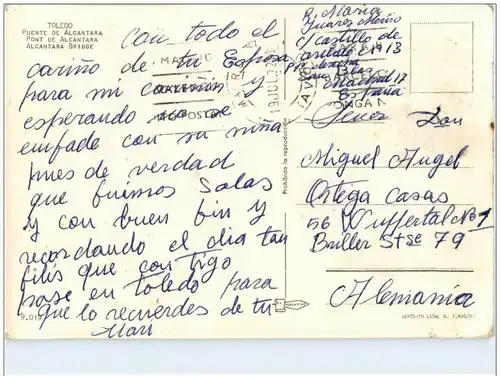 TOLEDO
PUENTE DE ALCANTARA
PONT DE ALCANTARA
ALCANTARA BRIDGE
Con todo el
cariño de tu Esposa
para mi cariñin y
esperando no se
enfade con su niña
pues de verdad
que fuimos Solas
y con buen fin y
recordando el dia tan
filis que con tigo
pase en toledo para
que lo recuerdes de tu
Mari
9.019
Prohibida la reproducción
R. María
Juarez
c/ Castillo de
13
Madrid 17
España
Senor Don
Miguel Angel
Ortega Casas
56 Wuppertal No 1
Briller Stse 79
Alemania
DEPÓSITO LEGAL B.